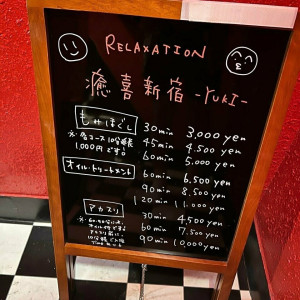 RELAXATION
癒喜新宿 -YUKI-
もみほぐし
30min 3,000yen
45min 4,500yen
60min 5,000yen
※各コース10分延長
1,000円です!
オイル・トリートメント
60min 6,500yen
90min 8,500yen
120min 11,000yen
アカスリ
30min 4,500yen
60min 7,500yen
90min 10,000yen